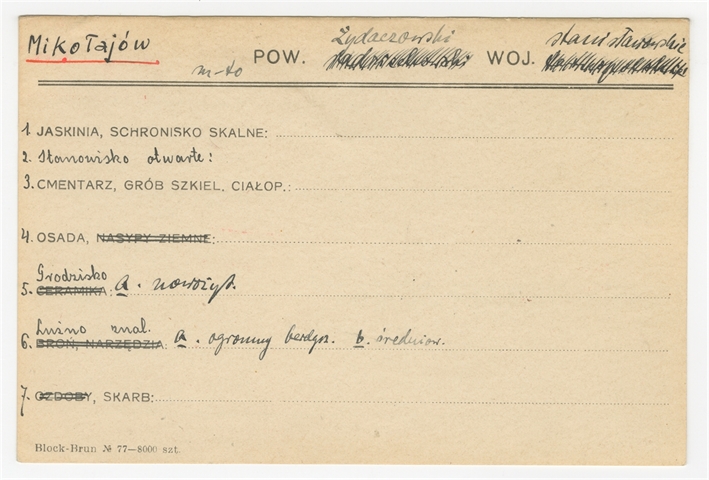 Mikołajów
m-to POW. Żydaczowski WOJ. stanisławowskie
1. JASKINIA, SCHRONISKO SKALNE:
2. Stanowisko otwarte:
3. CMENTARZ, GRÓB SZKIEL. CIAŁOP.:
4. OSADA, NASYPY ZIEMNE:
Grodzisko
5. CERAMIKA: a. nowożyt.
Luźno znal.
6. BROŃ, NARZĘDZIA: a. ogromny berdysz. b. średniow.
7. OZDOBY, SKARB:
Block-Brun № 77—8000 szt.